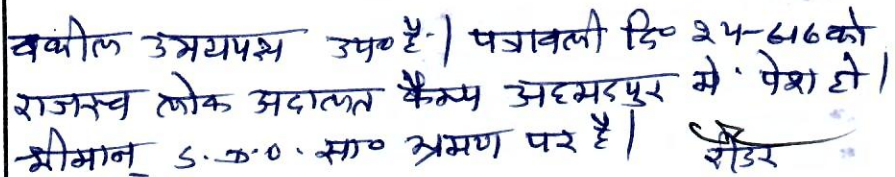 वकील उभयपक्ष उप० है। पत्रावली दि० 24-6-16 को
राजस्व लोक अदालत कैम्प अहमदपुर में पेश हो।
श्रीमान् S.D.O. सा० भ्रमण पर है। रीडर